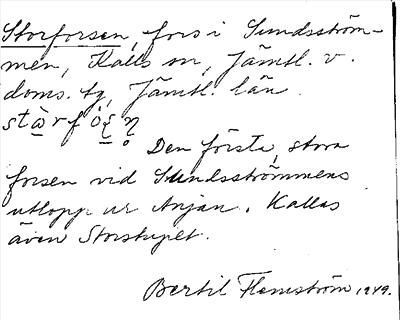 Storforsen, fors i Sundsström-
men, Kalls sn, Jämtl. v.
doms. tg, Jämtl. län.
Den första, stora
forsen vid Sundsströmmens
utlopp ur Anjan. Kallas
även Storstupet.
Bertil Flemström 1949.